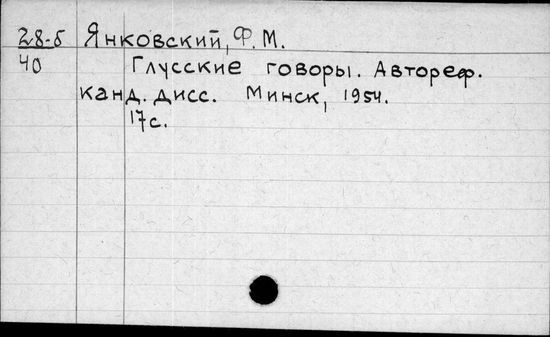 28-б Янковский, Ф.М.
40 Глусские говоры. Автореф.
канд. дисс. Минск, 1954.
17с.